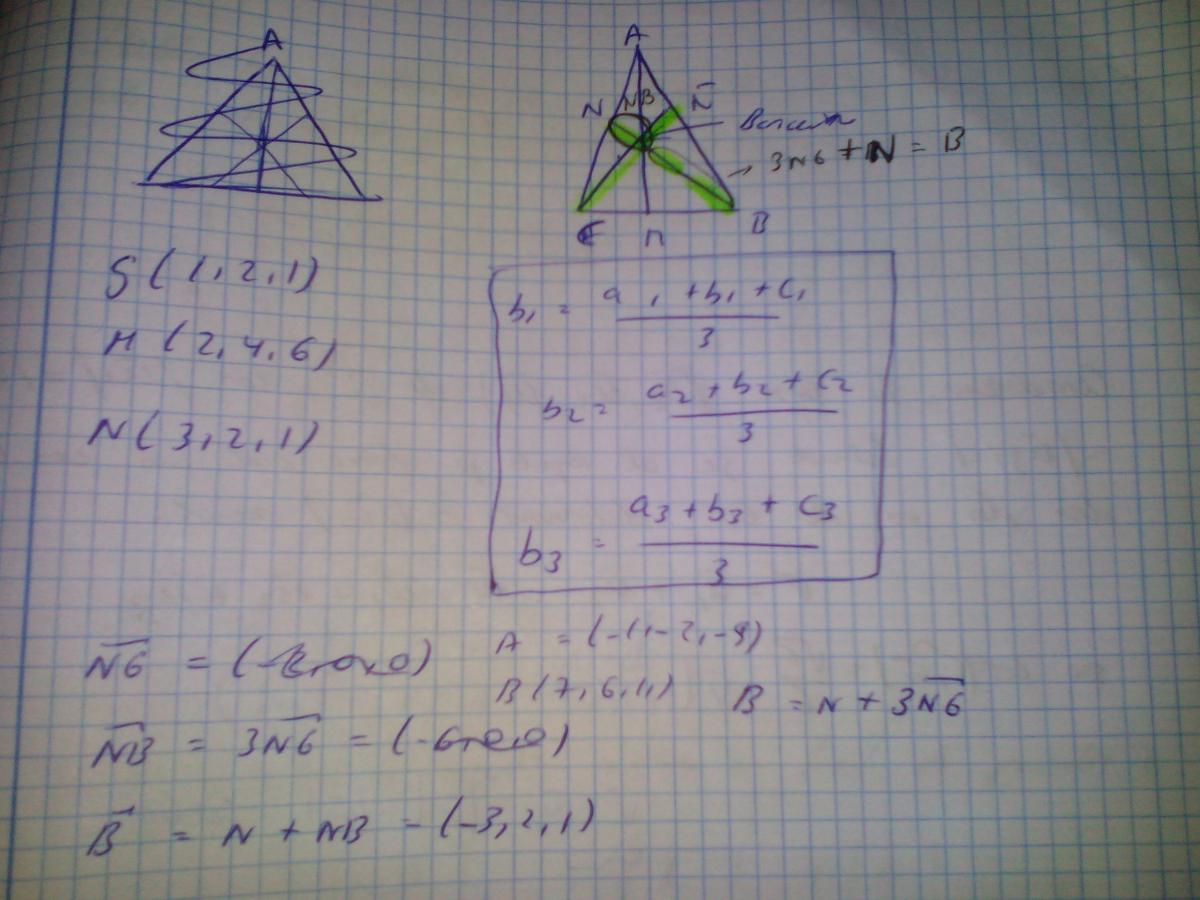 A
A
N
NB
N̄
3NG + N = B
C
П
B
G (1, 2, 1)
M (2, 4, 6)
N (3, 2, 1)
b₁ = a₁ + b₁ + c₁ / 3
b₂ = a₂ + b₂ + c₂ / 3
b₃ = a₃ + b₃ + c₃ / 3
N̅G̅ = (-2, 0, 0)
A = (-1, -2, -9)
B (7, 6, 11)
B = N + 3N̅G̅
N̅B̅ = 3N̅G̅ = (-6, 0, 0)
B̅ = N + NB = (-3, 2, 1)